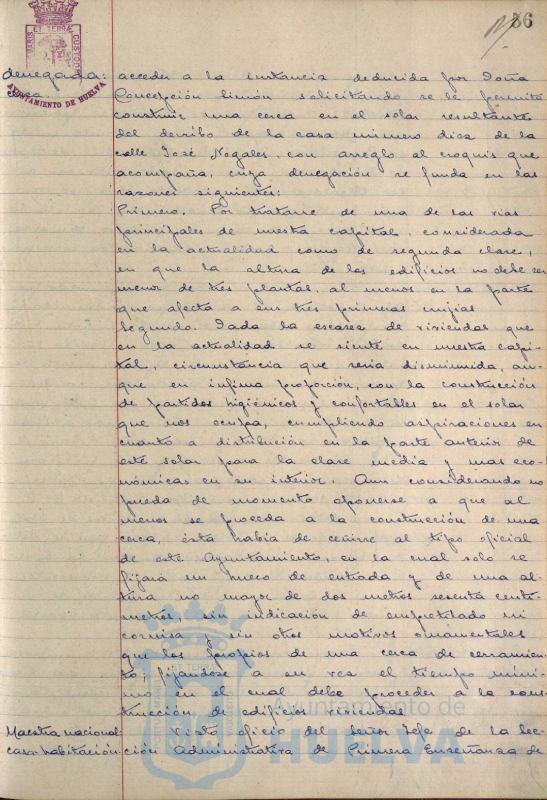 86
PORTUS MARIS ET TERRAE CUSTODIA
AYUNTAMIENTO DE HUELVA
denegada:
cerca.
acceder a la instancia deducida por Doña
Concepción Limón solicitando se le permita
construir una cerca en el solar resultante
del derribo de la casa número diez de la
calle José Nogales, con arreglo al croquis que
acompaña, cuya denegación se funda en las
razones siguientes:
Primero. Por tratarse de una de las vias
principales de nuestra capital, considerada
en la actualidad como de segunda clase,
en que la altura de los edificios no debe ser
menor de tres plantas, al menos en la parte
que afecta a sus tres primeras crujias
Segundo. Dada la escasea de viviendas que
en la actualidad se siente en nuestra capi-
tal, circunstancia que seria disminuida, aun-
que en infima proporción, con la construcción
de partidos higiénicos y confortables en el solar
que nos ocupa, cumpliendo aspiraciones en
cuanto a distribución en la parte anterior de
este solar para la clase media y mas eco-
nómicas en su interior. Aun considerando no
pueda de momento oponerse a que al
menos se proceda a la construcción de una
cerca, ésta habia de ceñirse al tipo oficial
de este Ayuntamiento, en la cual solo se
fijará un hueco de entrada y de una al-
tura no mayor de dos metros sesenta centi-
metros, sin indicación de empretilado ni
cornisa y sin otros motivos ornamentales
que los propios de una cerca de cerramien-
to, fijandose a su vez el tiempo míni-
mo en el cual debe proceder a la cons-
trucción de edificios viviendas
Maestra nacional
casa-habitación.
Visto oficio del Señor Jefe de la Sec-
ción Administrativa de Primera Enseñanza de
Ayuntamiento de
HUELVA